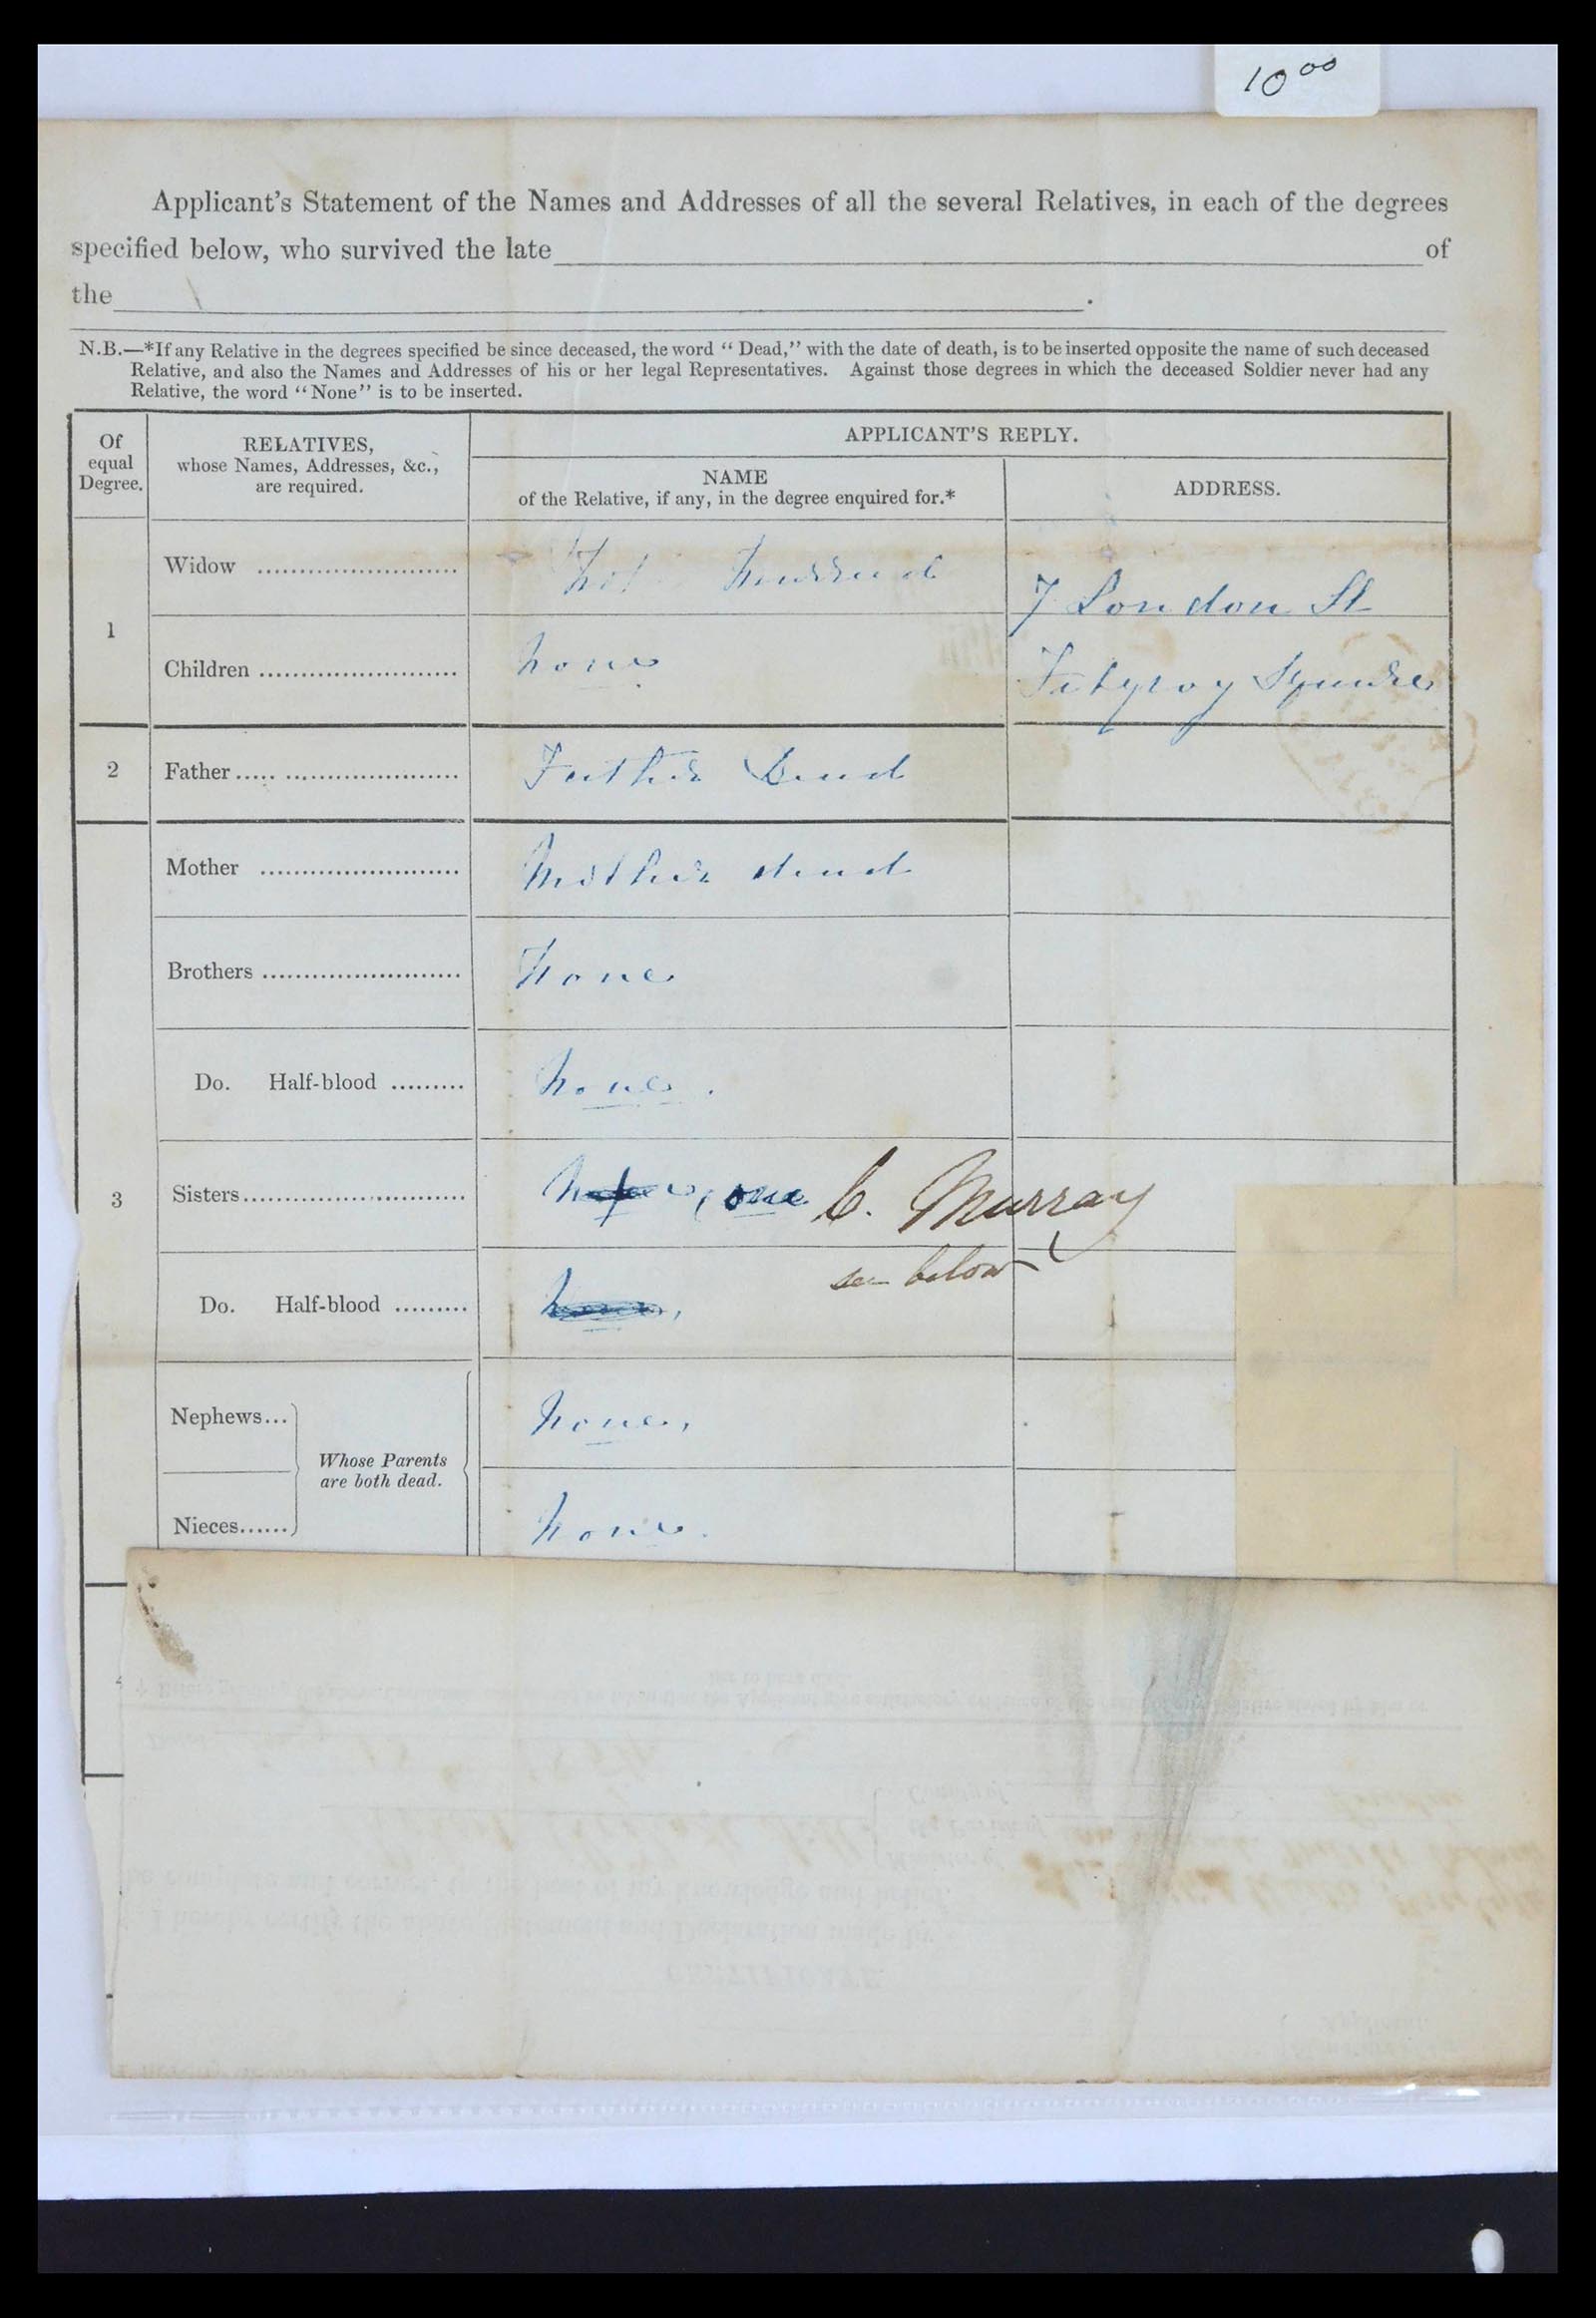 10 00
Applicant's Statement of the Names and Addresses of all the several Relatives, in each of the degrees
specified below, who survived the late of
the .
N.B.—*If any Relative in the degrees specified be since deceased, the word "Dead," with the date of death, is to be inserted opposite the name of such deceased
Relative, and also the Names and Addresses of his or her legal Representatives. Against those degrees in which the deceased Soldier never had any
Relative, the word "None" is to be inserted.
Of equal Degree.
RELATIVES,
whose Names, Addresses, &c.,
are required.
APPLICANT'S REPLY.
NAME
of the Relative, if any, in the degree enquired for.*
ADDRESS.
1
Widow ........................ Not Married
7 London St
Children ........................ none
Fitzroy Square
2 Father..... ..................... Father Dead
Mother ........................ Mother dead
Brothers ........................ None
Do. Half-blood ......... none.
3 Sisters........................... one C. Murray
see below
Do. Half-blood ......... none,
Nephews... none,
Whose Parents
are both dead.
Nieces...... none.